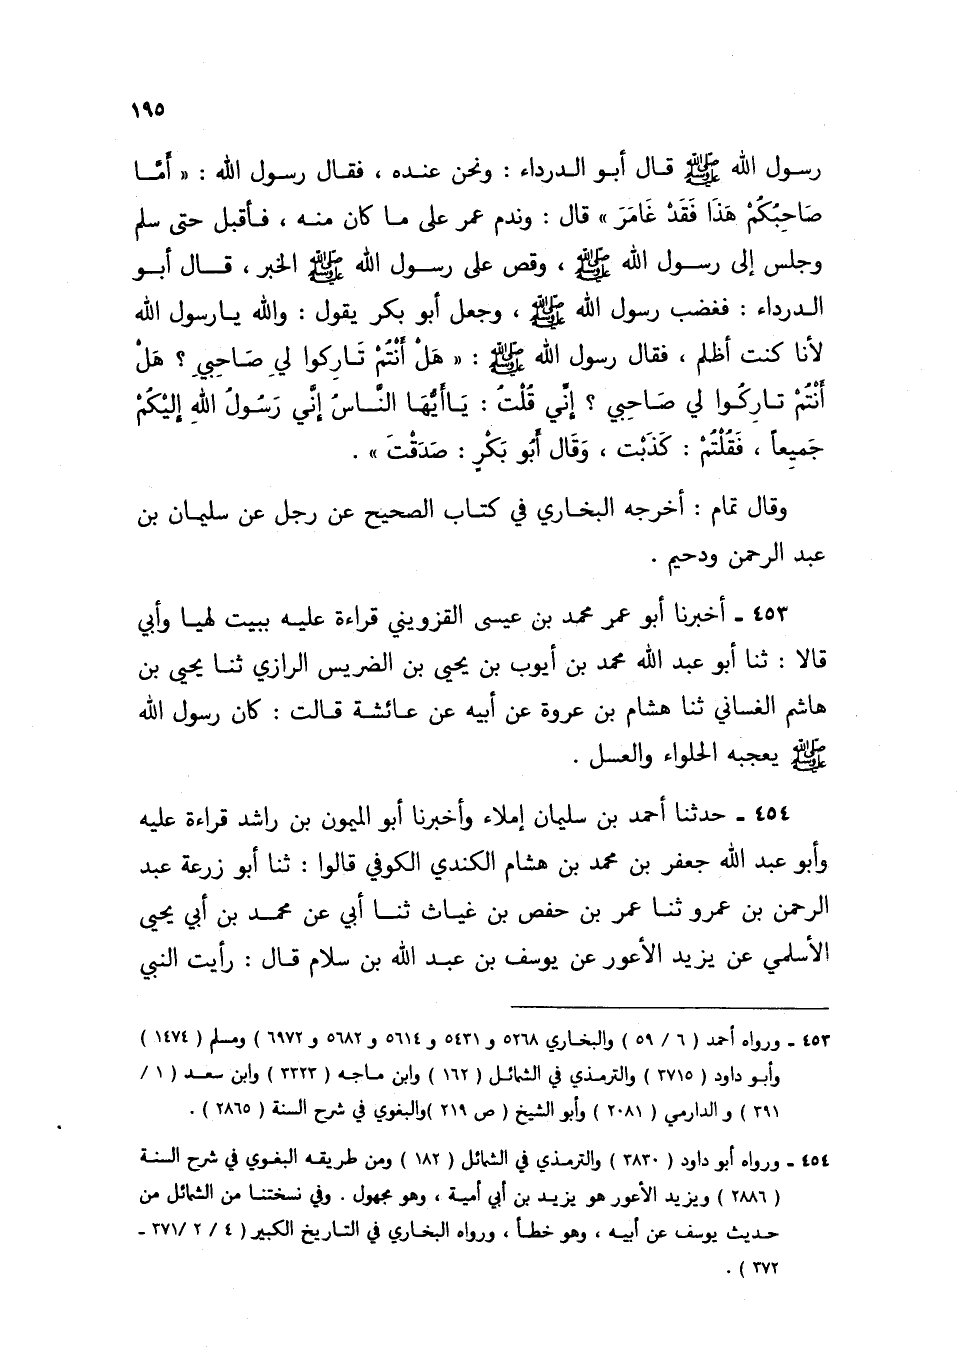 ١٩٥
رسول الله ﷺ قال أبو الدرداء : ونحن عنده ، فقال رسول الله : « أَمَّا
صَاحِبُكُمْ هَذَا فَقَدْ غَامَرَ » قال : وندم عمر على ما كان منه ، فأقبل حتى سلم
وجلس إلى رسول الله ﷺ ، وقص على رسول الله ﷺ الخبر ، قال أبو
الدرداء : فغضب رسول الله ﷺ ، وجعل أبو بكر يقول : والله يارسول الله
لأنا كنت أظلم ، فقال رسول الله ﷺ : « هَلْ أَنْتُمْ تَارِكوا لي صَاحِبي ؟ هَلْ
أَنْتُمْ تارِكُوا لي صَاحِبي ؟ إنَّي قُلْتُ : يَاأَيُّهَا النَّاسُ إنَّي رَسُولُ اللهِ إلَيْكُمْ
جَمِيعاً ، فَقُلْتُمْ : كَذَبْت ، وَقَال أَبُو بَكْرٍ : صَدَقْتَ » .
وقال تمام : أخرجه البخاري في كتاب الصحيح عن رجل عن سليمان بن
عبد الرحمن ودحيم .
٤٥٣ ـ أخبرنا أبو عمر محمد بن عيسى القزويني قراءة عليه ببيت لهيا وأبي
قالا : ثنا أبو عبد الله محمد بن أيوب بن يحيى بن الضريس الرازي ثنا يحيى بن
هاشم الغساني ثنا هشام بن عروة عن أبيه عن عائشة قالت : كان رسول الله
ﷺ يعجبه الحلواء والعسل .
٤٥٤ ـ حدثنا أحمد بن سليمان إملاء وأخبرنا أبو الميون بن راشد قراءة عليه
وأبو عبد الله جعفر بن محمد بن هشام الكندي الكوفي قالوا : ثنا أبو زرعة عبد
الرحمن بن عمرو ثنا عمر بن حفص بن غياث ثنا أبي عن محمد بن أبي يحيى
الأسلمي عن يزيد الأعور عن يوسف بن عبد الله بن سلام قال : رأيت النبي
٤٥٣ ـ ورواه أحمد ( ٦ / ٥٩ ) والبخاري ٥٢٦٨ و ٥٤٣١ و ٥٦١٤ و ٥٦٨٢ و ٦٩٧٢ ) ومسلم ( ١٤٧٤ )
وأبو داود ( ٣٧١٥ ) والترمذي في الشمائل ( ١٦٢ ) وابن ماجه ( ٣٣٢٣ ) وابن سعد ( ١ /
٣٩١ ) و الدارمي ( ٢٠٨١ ) وأبو الشيخ ( ص ٢١٩ )والبغوي في شرح السنة ( ٢٨٦٥ ) .
٤٥٤ ـ ورواه أبو داود ( ٣٨٣٠ ) والترمذي في الشمائل ( ١٨٢ ) ومن طريقه البغوي في شرح السنة
( ٢٨٨٦ ) ويزيد الأعور هو يزيد بن أبي أمية ، وهو مجهول . وفي نسختنا من الشمائل من
حديث يوسف عن أبيه ، وهو خطأ ، ورواه البخاري في التاريخ الكبير ( ٤ / ٢ /٣٧١ ـ
٣٧٢ ) .